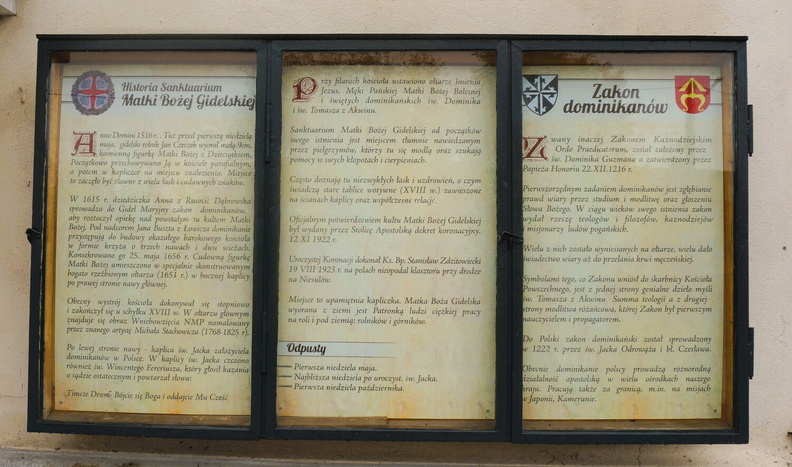 Historia Sanktuarium
Matki Bożej Gidelskiej
Anno Domini 1516 r. . Tuż przed pierwszą niedzielą
maja, gidelski rolnik Jan Czeczek wyorał małą 9cm.
kamienną figurkę Matki Bożej z Dzieciątkiem.
Początkowo przechowywano Ją w kościele parafialnym,
a potem w kapliczce na miejscu znalezienia. Miejsce
to zaczęło być sławne z wielu łask i cudownych znaków.
W 1615 r. dziedziczka Anna z Rusocic Dąbrowska
sprowadza do Gidel Maryjny zakon dominikanów,
aby roztoczył opiekę nad powstałym tu kultem Matki
Bożej. Pod nadzorem Jana Buszta z Łowicza dominikanie
przystępują do budowy okazałego barokowego kościoła
w formie krzyża o trzech nawach i dwu wieżach.
Konsekrowano go 25. maja 1656 r. Cudowną figurkę
Matki Bożej umieszczono w specjalnie skonstruowanym
bogato rzeźbionym ołtarzu (1651 r.) w bocznej kaplicy
po prawej stronie nawy głównej.
Obecny wystrój kościoła dokonywał się stopniowo
i zakończył się u schyłku XVIII w. W ołtarzu głównym
znajduje się obraz Wniebowzięcia NMP namalowany
przez znanego artystę Michała Stachowicza (1768-1825 r).
Po lewej stronie nawy - kaplica św. Jacka założyciela
dominikanów w Polsce. W kaplicy św. Jacka czczono
również św. Wincentego Fereriusza, który głosił kazania
o sądzie ostatecznym i powtarzał słowa:
„Timete Deum” Bójcie się Boga i oddajcie Mu Cześć
Przy filarach kościoła ustawiono ołtarze Imienia
Jezus, Męki Pańskiej Matki Bożej Bolesnej
i świętych dominikańskich św. Dominika
i św. Tomasza z Akwinu.
Sanktuarium Matki Bożej Gidelskiej od początków
swego istnienia jest miejscem tłumnie nawiedzanym
przez pielgrzymów, którzy tu się modlą oraz szukają
pomocy w swych kłopotach i cierpieniach.
Często doznają tu niezwykłych łask i uzdrowień, o czym
świadczą stare tablice wotywne (XVIII w.) zawieszone
na ścianach kaplicy oraz współczesne relacje.
Oficjalnym potwierdzeniem kultu Matki Bożej Gidelskiej
był wydany przez Stolicę Apostolską dekret koronacyjny.
12 XI 1922 r.
Uroczystej Koronacji dokonał Ks. Bp. Stanisław Zdzitowiecki
19 VIII 1923 r. na polach nieopodal klasztoru przy drodze
na Niesulów.
Miejsce to upamiętnia kapliczka. Matka Boża Gidelska
wyorana z ziemi jest Patronką ludzi ciężkiej pracy
na roli i pod ziemią: rolników i górników.
Odpusty
Pierwsza niedziela maja.
Najbliższa niedziela po uroczyst. św. Jacka.
Pierwsza niedziela października.
Zakon
dominikanów
Zwany inaczej Zakonem Kaznodziejskim
Ordo Praedicatorum, został założony przez
św. Dominika Guzmana a zatwierdzony przez
Papieża Honoriu 22.XII.1216 r.
Pierwszorzędnym zadaniem dominikanów jest zgłębianie
prawd wiary przez studium i modlitwę oraz głoszeniu
Słowa Bożego. W ciągu wieków swego istnienia zakon
wydał rzeszę teologów i filozofów, kaznodziejów
misjonarzy ludów pogańskich.
Wielu z nich zostało wyniesionych na ołtarze, wielu dało
świadectwo wiary aż do przelania krwi męczeńskiej.
Symbolami tego, co Zakonu wniósł do skarbnicy Kościoła
Powszechnego, jest z jednej strony genialne dzieło myśli
św. Tomasza z Akwinu Summa teologii a z drugiej
strony modlitwa różańcowa, której Zakon był pierwszym
nauczycielem i propagatorem.
Do Polski zakon dominikański został sprowadzony
w 1222 r. przez św. Jacka Odrowąża i bł. Czesława.
Obecnie dominikanie polscy prowadzą różnorodną
działalność apostolską w wielu ośrodkach naszego
kraju. Pracują także za granicą, m.in. na misjach
w Japonii, Kamerunie.